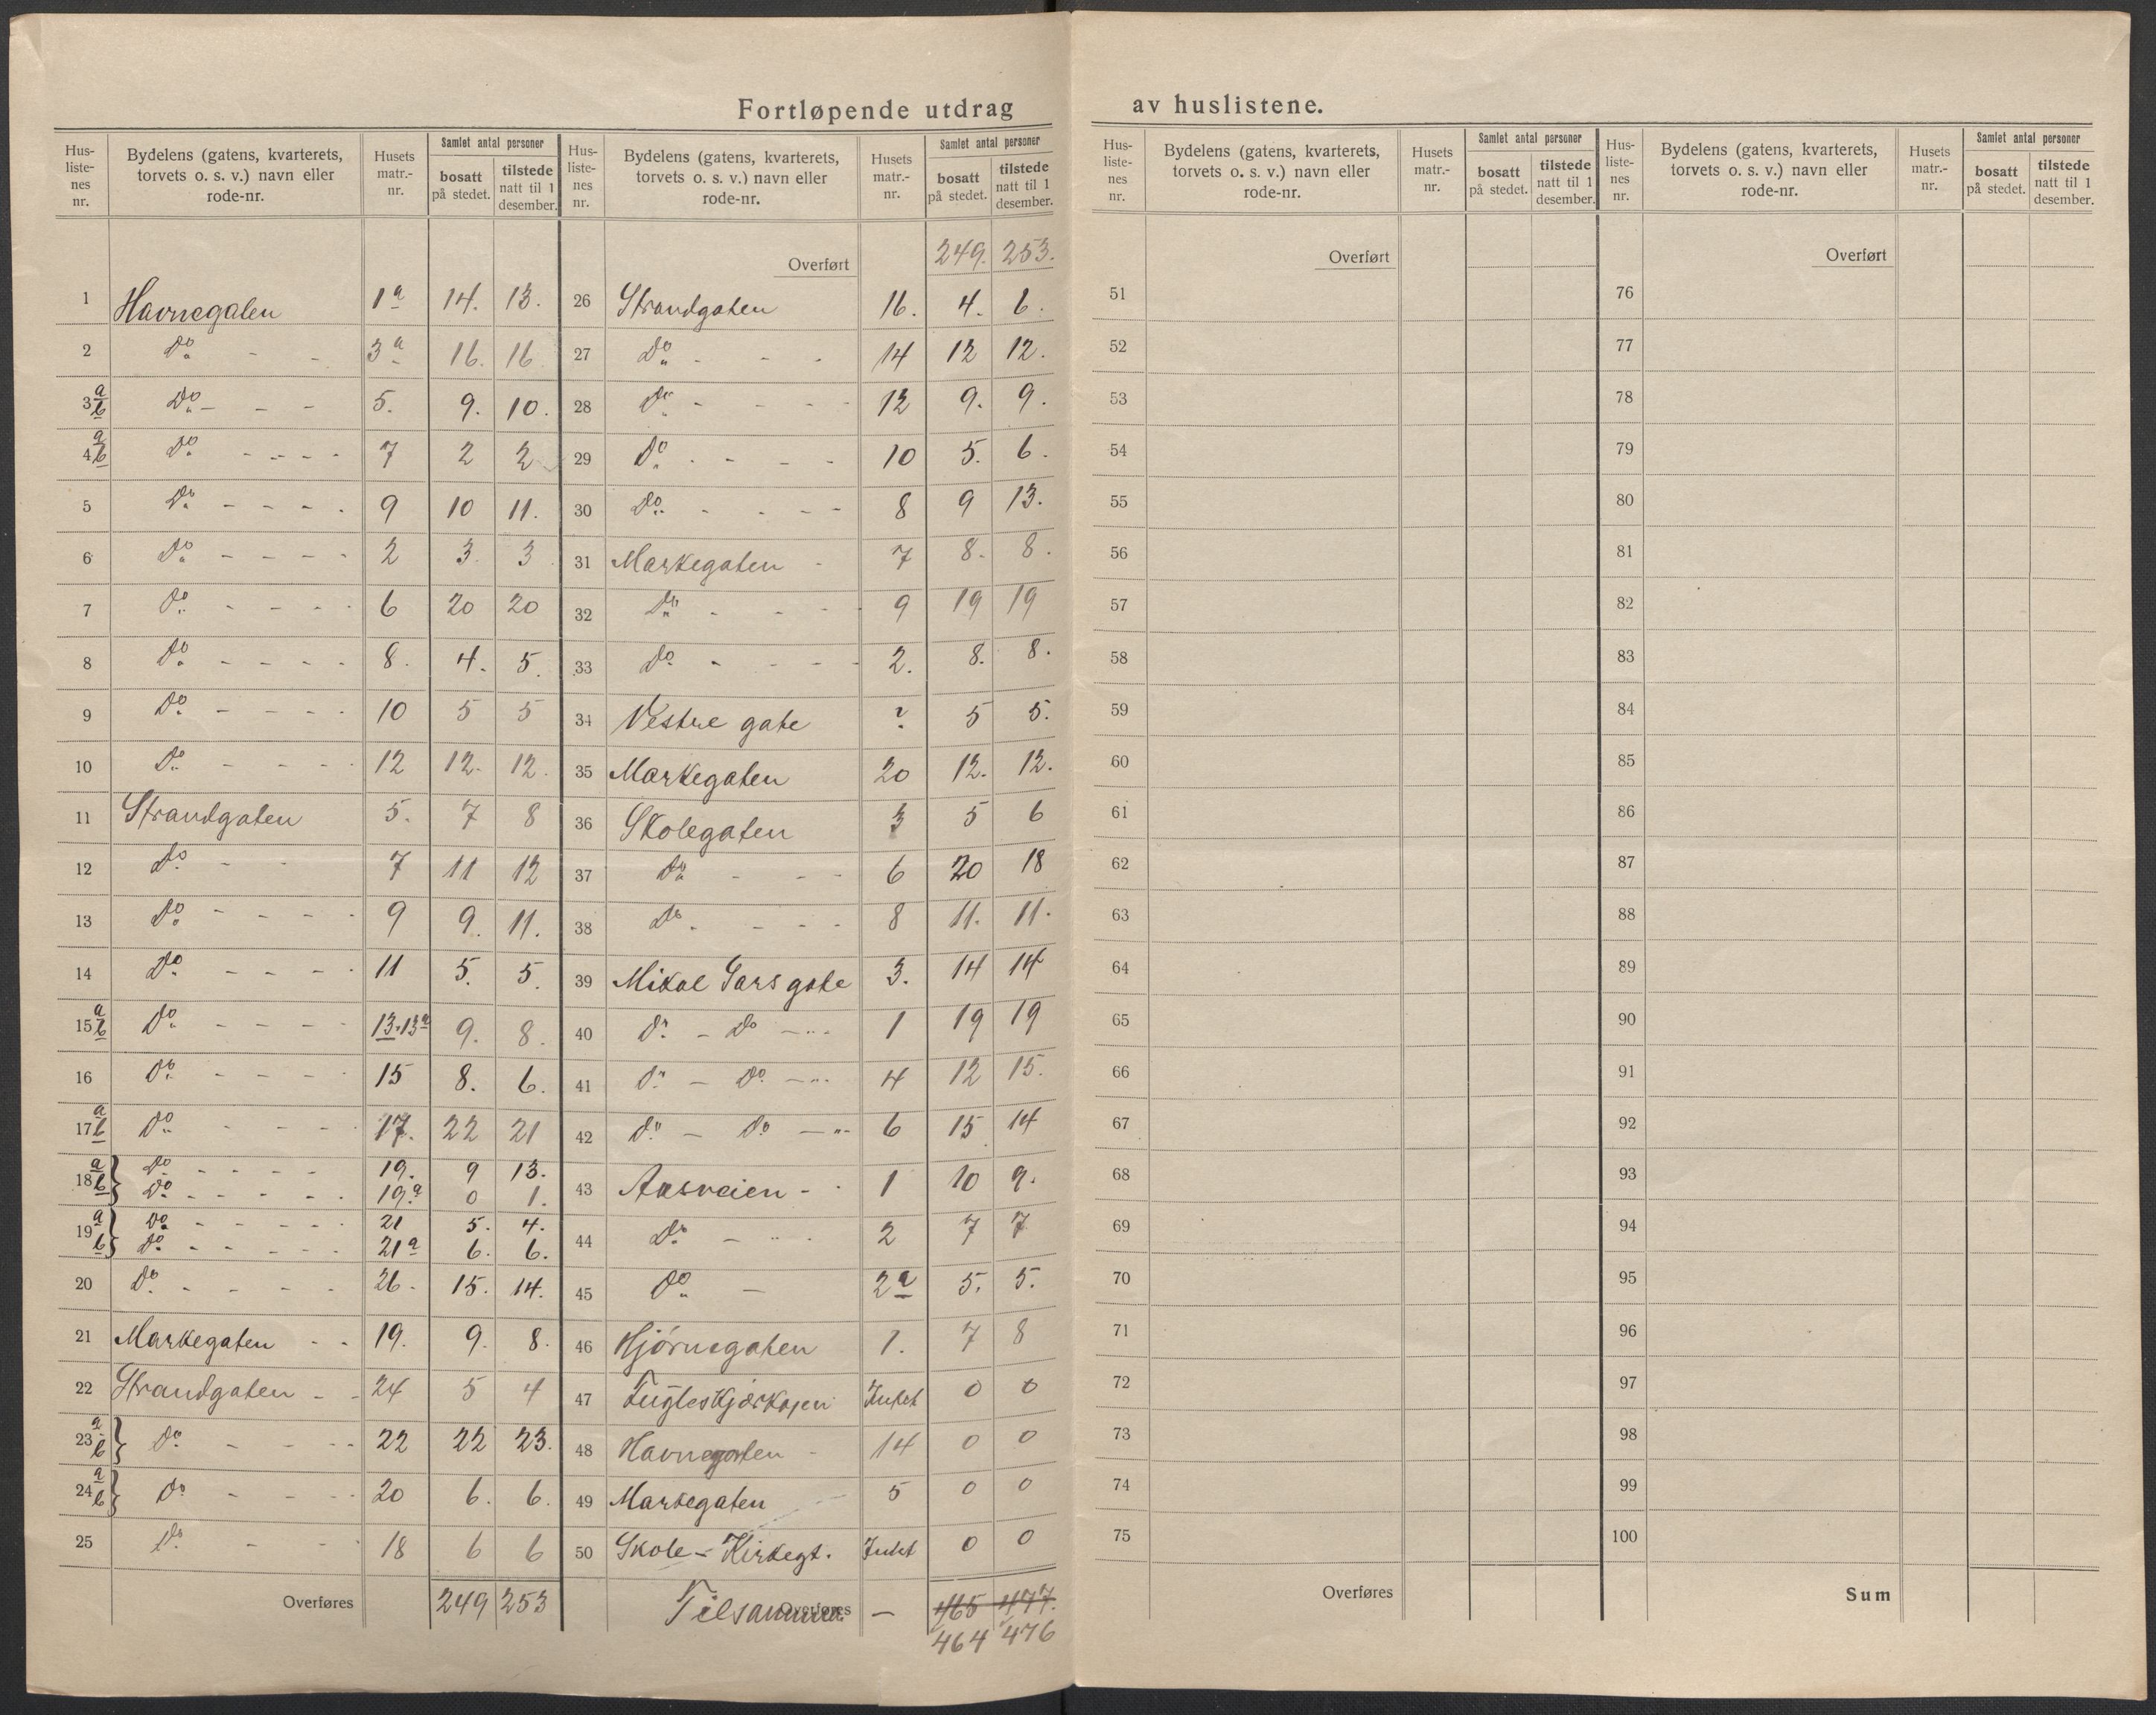 Fortløpende utdrag av huslistene.
Hus-listenes nr. | Bydelens (gatens, kvarterets, torvets o. s. v.) navn eller rode-nr. | Husets matr.-nr. | Samlet antal personer bosatt på stedet. | tilstede natt til 1 desember.
1 Havnegaten 1a 14. 13.
2 Do - - 3a 16. 16
3 a b Do - - - 5. 9. 10.
4 a b Do - - - - 7 2 2
5 Do - - - - 9 10 11.
6 Do - - - - 2 3. 3
7 Do - - - - 6 20 20
8 Do - - - - 8. 4. 5.
9 Do - - - - 10 5 5
10 Do - - - - 12 12. 12.
11 Strandgaten 5. 7 8
12 Do - - 7 11 12
13 Do - - - - 9 9. 11.
14 Do - - - - 11 5. 5.
15 a b Do - - - - 13.13a 9. 8.
16 Do - - - - 15 8. 6.
17 a b Do - - - - 17. 22 21
18 a Do - - - - 19. 9 13.
b Do - - - - - 19a 0 1.
19 a Do - - - - - 21 5. 4.
b Do - - - - - 21a 6. 6.
20 Do - - - - 26. 15. 14.
21 Markegaten - - 19. 9. 8.
22 Strandgaten - - 24 5 4
23 a b Do - - - - 22 22 23.
24 a b Do - - - - 20 6. 6.
25 Do - - - 18 6 6
Overføres 249 253
Hus-listenes nr. | Bydelens (gatens, kvarterets, torvets o. s. v.) navn eller rode-nr. | Husets matr.-nr. | Samlet antal personer bosatt på stedet. | tilstede natt til 1 desember.
Overført 249. 253.
26 Strandgaten 16. 4. 6.
27 Do - - - 14 12 12.
28 Do - - - - 12 9. 9.
29 Do - - - - 10 5. 6.
30 Do - - - - 8 9 13.
31 Markegaten - 7 8. 8.
32 Do - - - - 9 19 19
33 Do - - - - 2. 8. 8.
34 Vestre gate ? 5 5.
35 Markegaten 20 12. 12.
36 Skolegaten 3 5 6
37 Do - - - 6 20 18
38 Do - - - - 8 11. 11.
39 Mikal Sars gate 3. 14 14
40 Do - Do - 1 19 19
41 Do - Do - 4 12 15.
42 Do - Do - 6 15 14
43 Aasveien - 1 10 9.
44 Do - 2 7 7
45 Do - 2a 5. 5.
46 Hjørnegaten 1. 7 8
47 Fugleskjærkajen Intet 0 0
48 Havnegaten - 14 0 0
49 Markegaten 5 0 0
50 Skole - Kirkegt. Intet 0 0
Overføres Tilsammen - 465 477.
464 476
Hus-listenes nr. | Bydelens (gatens, kvarterets, torvets o. s. v.) navn eller rode-nr. | Husets matr.-nr. | Samlet antal personer bosatt på stedet. | tilstede natt til 1 desember.
Overført
51
52
53
54
55
56
57
58
59
60
61
62
63
64
65
66
67
68
69
70
71
72
73
74
75
Overføres
Hus-listenes nr. | Bydelens (gatens, kvarterets, torvets o. s. v.) navn eller rode-nr. | Husets matr.-nr. | Samlet antal personer bosatt på stedet. | tilstede natt til 1 desember.
Overført
76
77
78
79
80
81
82
83
84
85
86
87
88
89
90
91
92
93
94
95
96
97
98
99
100
Sum